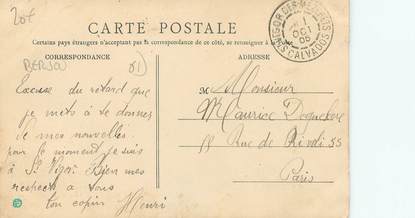 20f
CARTE POSTALE
Certains pays étrangers n'acceptant pas la correspondance de ce côté, se renseigner à
CORRESPONDANCE
ADRESSE
BERJOU
61)
VIGOR DES MÉZERETS
1
OCT
05
CALVADOS
Excuse du retard que
je mets à te donner
de mes nouvelles
pour le moment je suis
à St Vigor. Bien mes
respects à tous
ton copin Henri
M Monsieur
Maurice
18 Rue de Rivoli 55
Paris